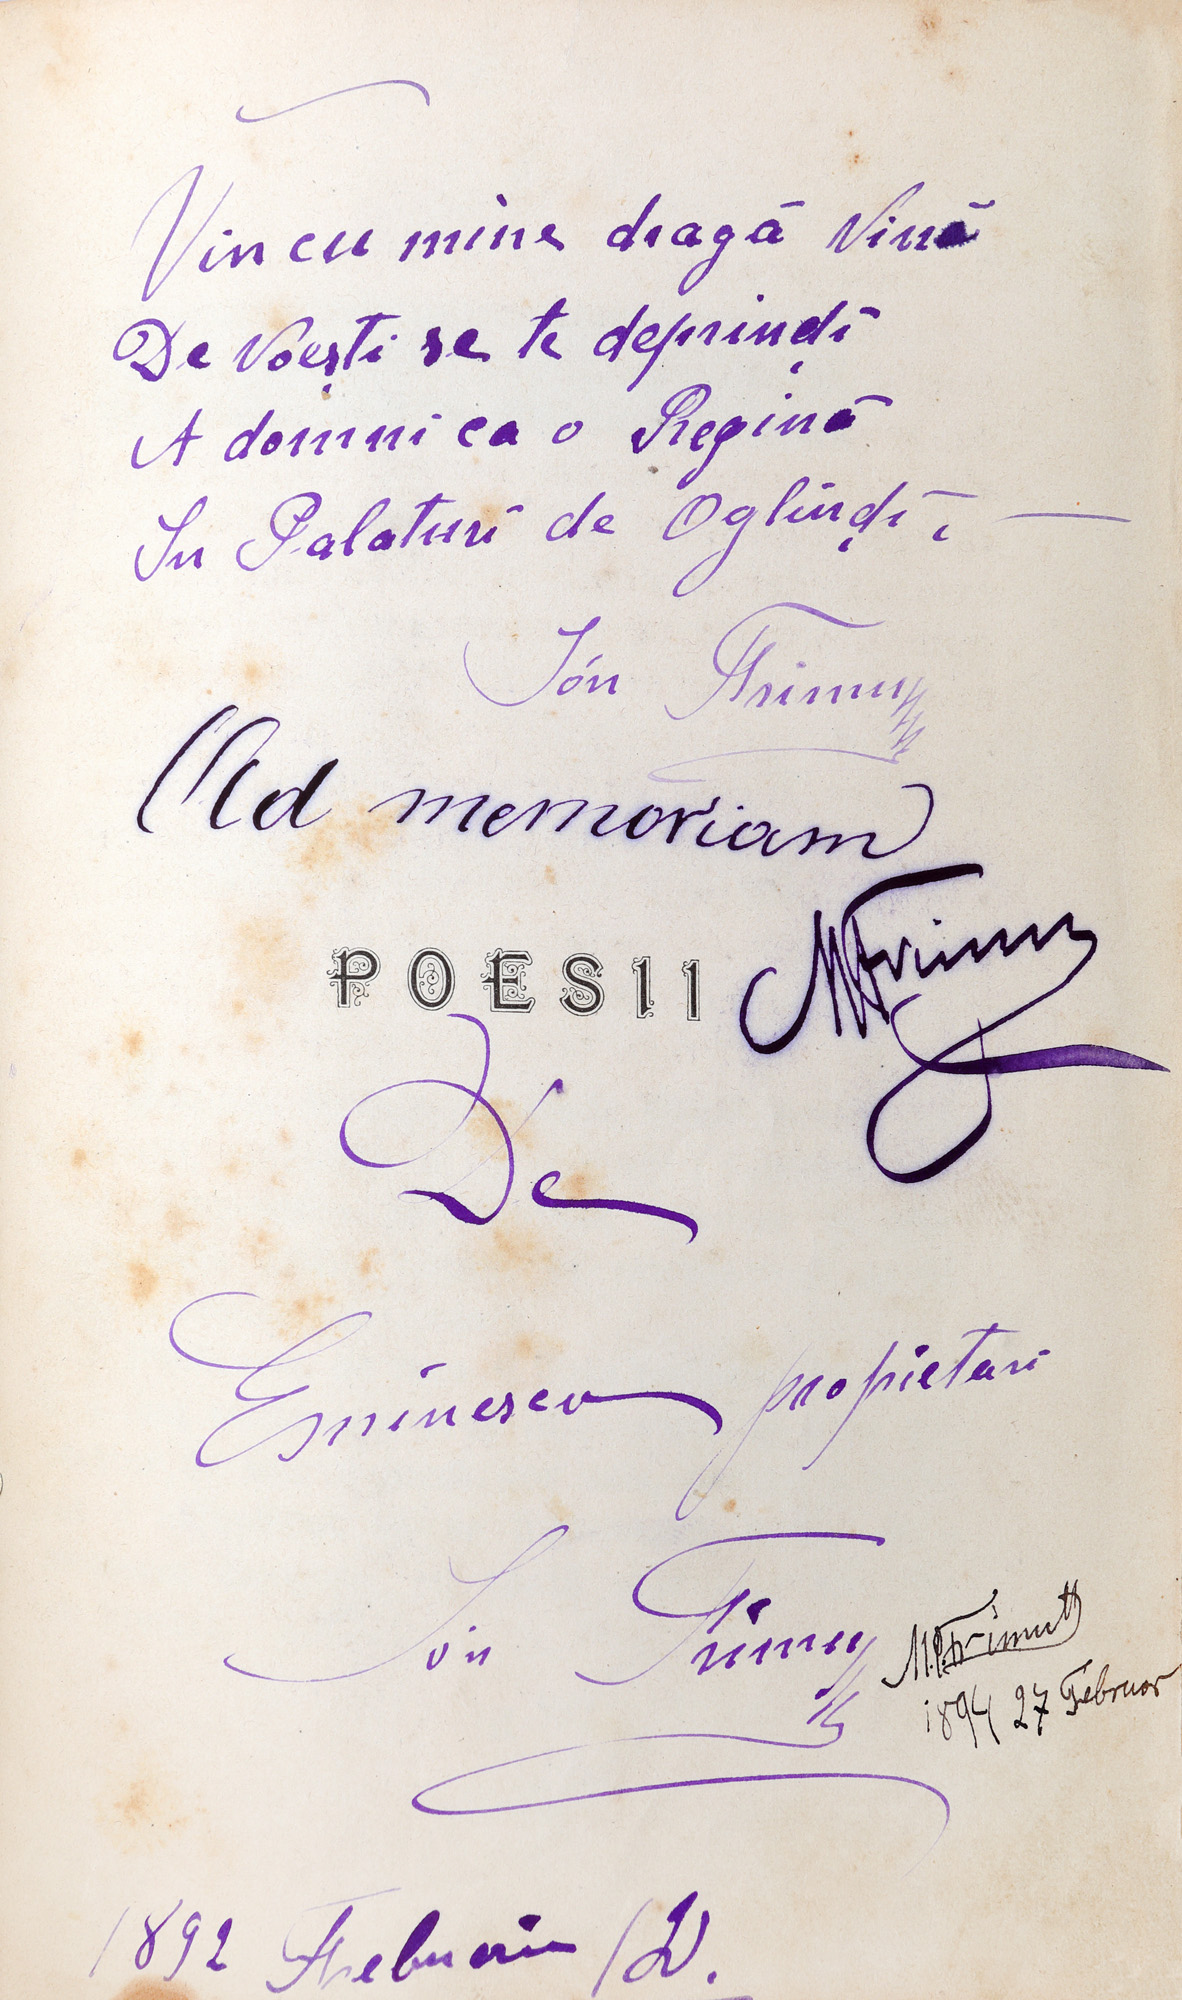 Vin cu mine dragă Vină
De Voești se te deprindi̦
A domni ca o Regină
In Palaturi de Oglindi̦,
Ión Frimu
Ad memoriam
POESII
M Frimu
De
Eminescu propietari
Ión Frimu
M.P. Frimu
1894 27 Februar
1892 Februarie 12.